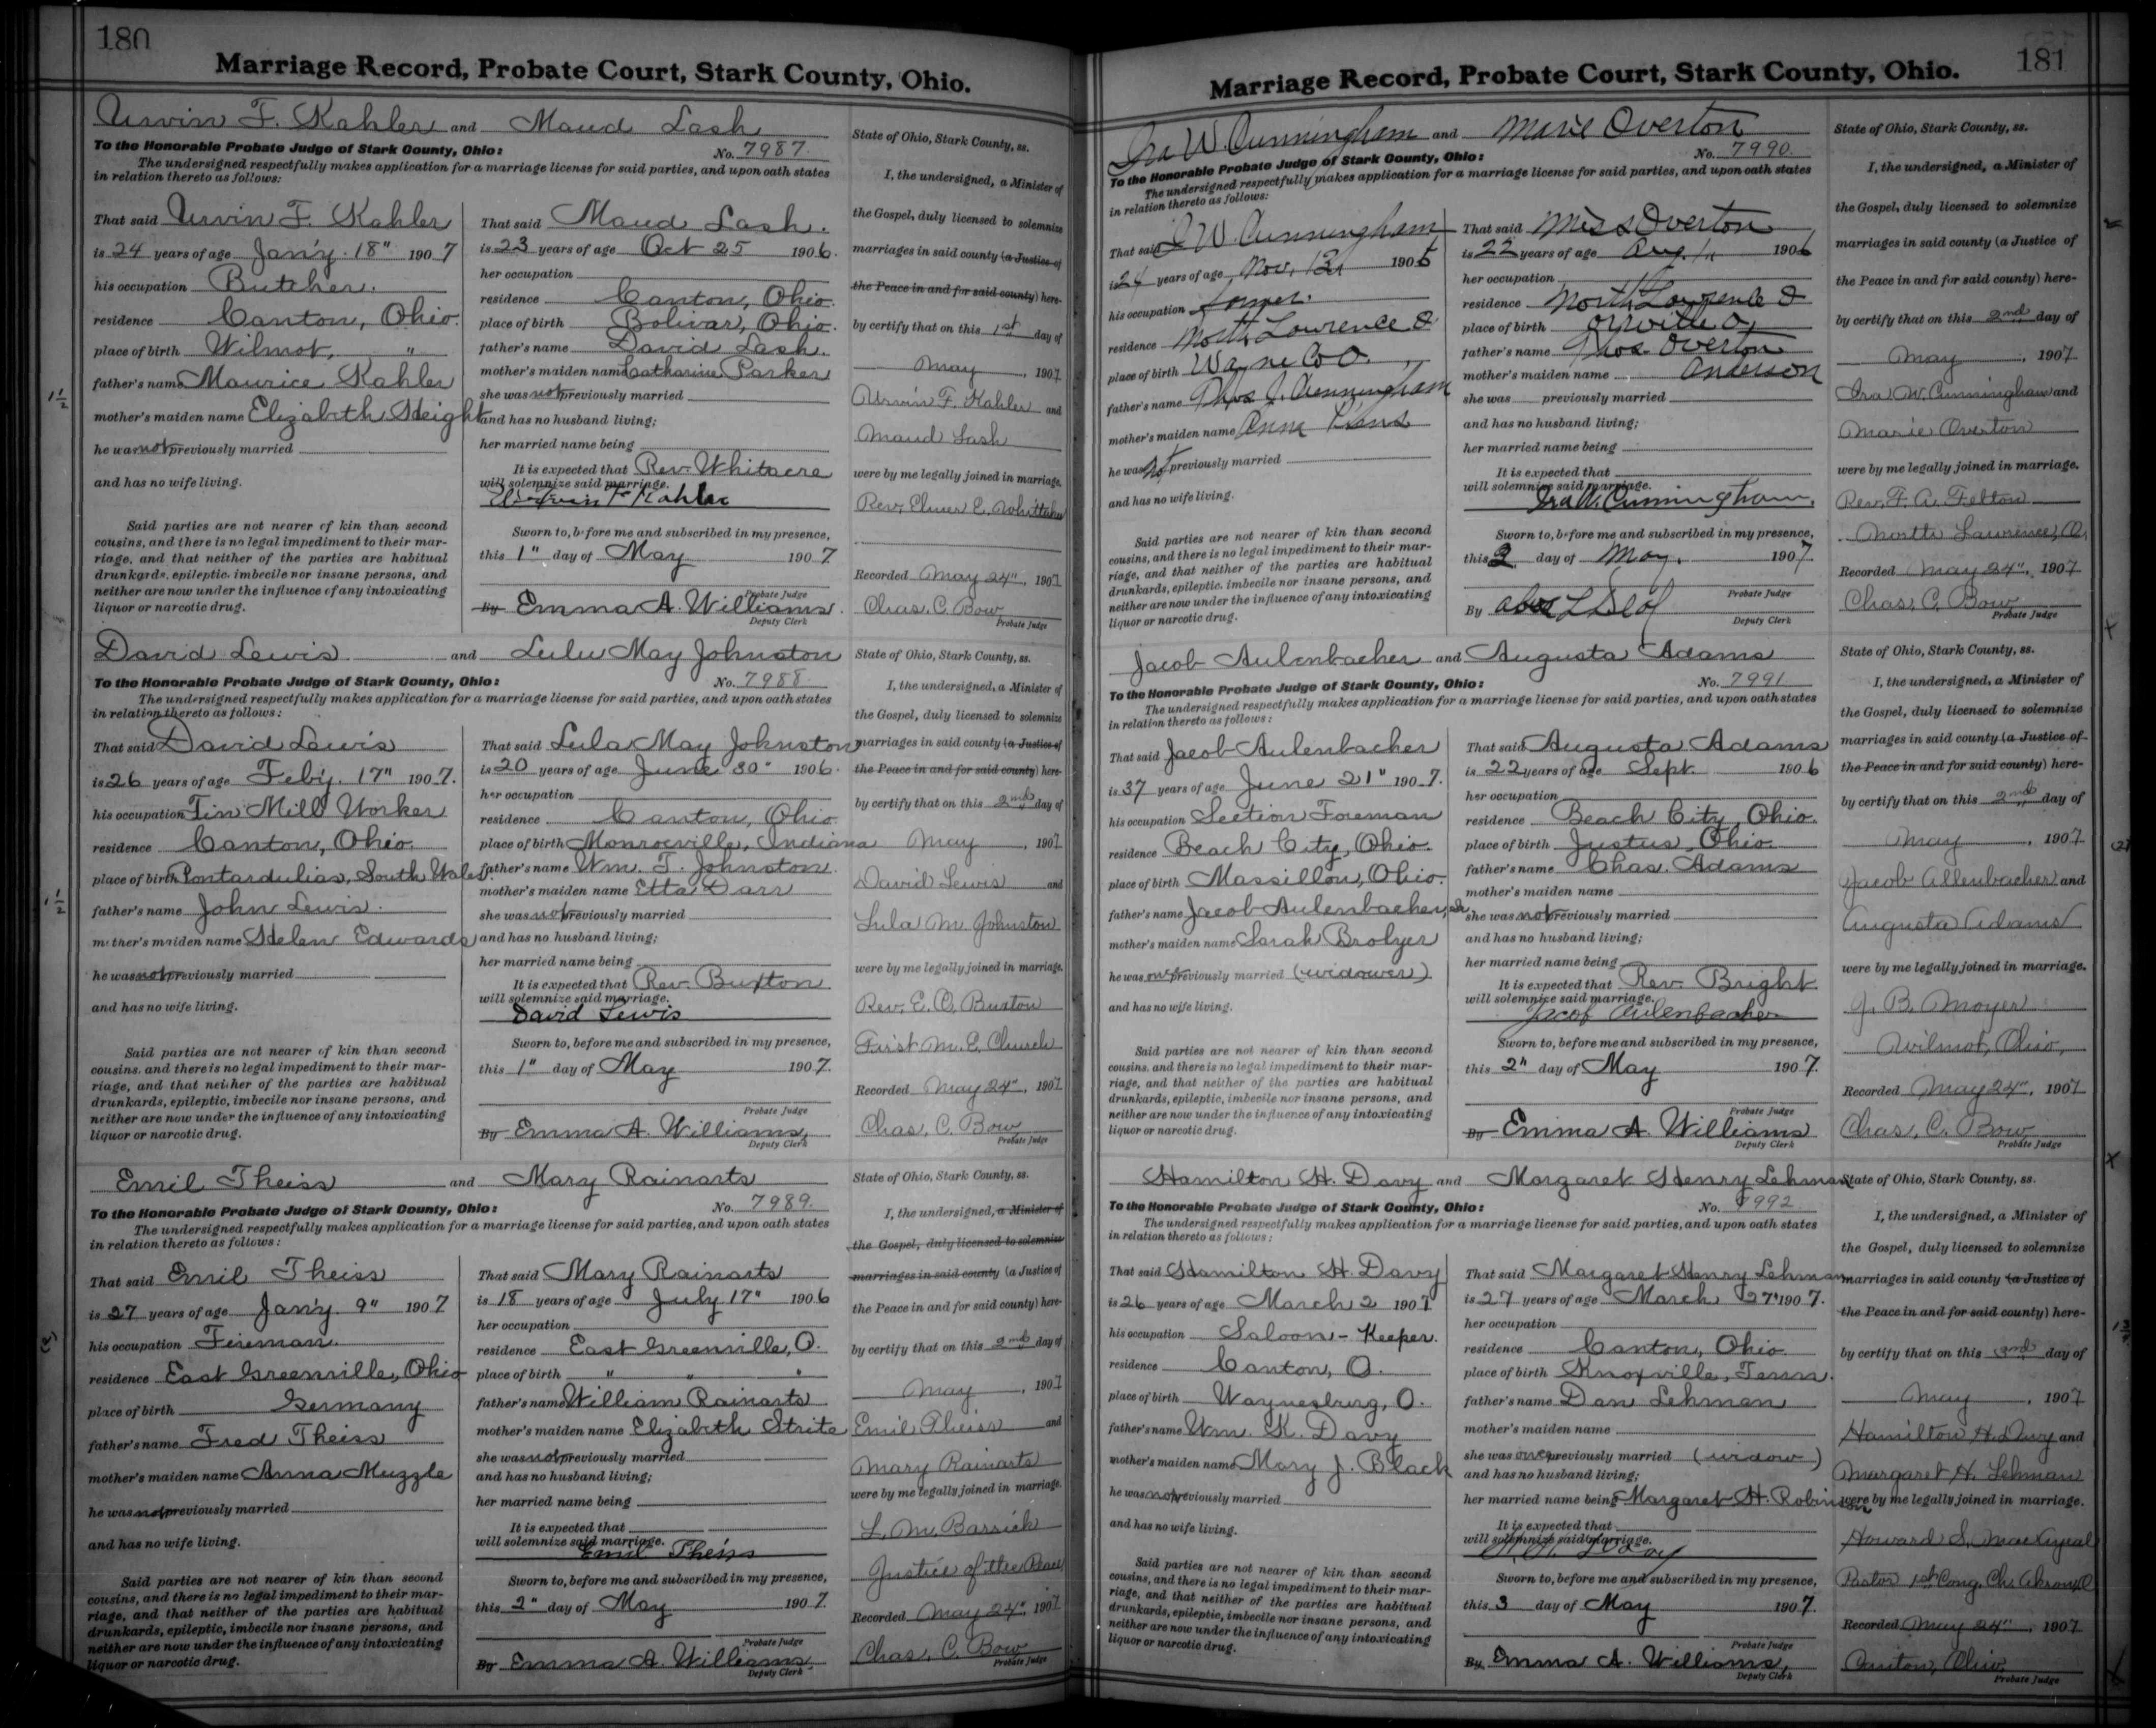 180
Marriage Record, Probate Court, Stark County, Ohio.
Urvin F. Kahler and Maud Lash
To the Honorable Probate Judge of Stark County, Ohio: No. 7987
The undersigned respectfully makes application for a marriage license for said parties, and upon oath states
in relation thereto as follows:
That said Urvin F. Kahler
is 24 years of age Jan'y. 18" 1907
his occupation Butcher.
residence Canton, Ohio.
place of birth Wilmot, "
father's name Maurice Kahler
mother's maiden name Elizabeth Height
he was not previously married
and has no wife living.
Said parties are not nearer of kin than second
cousins, and there is no legal impediment to their mar-
riage, and that neither of the parties are habitual
drunkards, epileptic, imbecile nor insane persons, and
neither are now under the influence of any intoxicating
liquor or narcotic drug.
That said Maud Lash.
is 23 years of age Oct 25 1906.
her occupation
residence Canton, Ohio.
place of birth Bolivar, Ohio.
father's name David Lash.
mother's maiden name Catharine Parker
she was not previously married
and has no husband living;
her married name being
It is expected that Rev. Whitacre
will solemnize said marriage.
Urvin F Kahler
Sworn to, before me and subscribed in my presence,
this 1" day of May 1907.
Probate Judge
By Emma A. Williams.
Deputy Clerk
State of Ohio, Stark County, ss.
I, the undersigned, a Minister of
the Gospel, duly licensed to solemnize
marriages in said county (a Justice of
the Peace in and for said county) here-
by certify that on this 1st day of
May, 1907
Urvin F. Kahler and
Maud Lash
were by me legally joined in marriage.
Rev. Elmer E. Whittaker
Recorded May 24", 1907
Chas. C. Bow
Probate Judge
David Lewis and Lulu May Johnston
To the Honorable Probate Judge of Stark County, Ohio: No. 7988
The undersigned respectfully makes application for a marriage license for said parties, and upon oath states
in relation thereto as follows:
That said David Lewis
is 26 years of age Feb'y. 17" 1907.
his occupation Tin Mill Worker
residence Canton, Ohio.
place of birth Pontardulias, South Wales.
father's name John Lewis.
mother's maiden name Helen Edwards
he was not previously married
and has no wife living.
Said parties are not nearer of kin than second
cousins, and there is no legal impediment to their mar-
riage, and that neither of the parties are habitual
drunkards, epileptic, imbecile nor insane persons, and
neither are now under the influence of any intoxicating
liquor or narcotic drug.
That said Lula May Johnston
is 20 years of age June 30" 1906.
her occupation
residence Canton, Ohio.
place of birth Monroeville, Indiana
father's name Wm. T. Johnston.
mother's maiden name Etta Darr
she was not previously married
and has no husband living;
her married name being
It is expected that Rev. Buxton
will solemnize said marriage.
David Lewis
Sworn to, before me and subscribed in my presence,
this 1" day of May 1907.
Probate Judge
By Emma A. Williams,
Deputy Clerk
State of Ohio, Stark County, ss.
I, the undersigned, a Minister of
the Gospel, duly licensed to solemnize
marriages in said county (a Justice of
the Peace in and for said county) here-
by certify that on this 2nd day of
May, 1907
David Lewis and
Lula M. Johnston
were by me legally joined in marriage.
Rev. E. O. Buxton
First M. E. Church
Recorded May 24", 1907
Chas. C. Bow
Probate Judge
Emil Theiss and Mary Rainarts
To the Honorable Probate Judge of Stark County, Ohio: No. 7989.
The undersigned respectfully makes application for a marriage license for said parties, and upon oath states
in relation thereto as follows:
That said Emil Theiss
is 27 years of age Jan'y. 9" 1907
his occupation Fireman.
residence East Greenville, Ohio
place of birth Germany
father's name Fred Theiss
mother's maiden name Anna Muzzle
he was not previously married
and has no wife living.
Said parties are not nearer of kin than second
cousins, and there is no legal impediment to their mar-
riage, and that neither of the parties are habitual
drunkards, epileptic, imbecile nor insane persons, and
neither are now under the influence of any intoxicating
liquor or narcotic drug.
That said Mary Rainarts
is 18 years of age July 17" 1906
her occupation
residence East Greenville, O.
place of birth " " "
father's name William Rainarts
mother's maiden name Elizabeth Strite
she was not previously married
and has no husband living;
her married name being
It is expected that
will solemnize said marriage.
Emil Theiss
Sworn to, before me and subscribed in my presence,
this 2" day of May 1907.
Probate Judge
By Emma A. Williams,
Deputy Clerk
State of Ohio, Stark County, ss.
I, the undersigned, a Minister of
the Gospel, duly licensed to solemnize
marriages in said county (a Justice of
the Peace in and for said county) here-
by certify that on this 2nd day of
May, 1907
Emil Theiss and
Mary Rainarts
were by me legally joined in marriage.
L. M. Barrick
Justice of the Peace
Recorded May 24", 1907
Chas. C. Bow
Probate Judge
181
Marriage Record, Probate Court, Stark County, Ohio.
Ira W. Cunningham and Marie Overton
To the Honorable Probate Judge of Stark County, Ohio: No. 7990.
The undersigned respectfully makes application for a marriage license for said parties, and upon oath states
in relation thereto as follows:
That said I W. Cunningham
is 24 years of age Nov. 13" 1906
his occupation Farmer.
residence North Lawrence O
place of birth Wayne Co O.
father's name Thos J. Cunningham
mother's maiden name Anna
he was not previously married
and has no wife living.
Said parties are not nearer of kin than second
cousins, and there is no legal impediment to their mar-
riage, and that neither of the parties are habitual
drunkards, epileptic, imbecile nor insane persons, and
neither are now under the influence of any intoxicating
liquor or narcotic drug.
That said Miss Overton
is 22 years of age Aug. 1" 1906
her occupation
residence North Lawrence O
place of birth Orrville O,
father's name Thos. Overton
mother's maiden name Anderson
she was previously married
and has no husband living;
her married name being
It is expected that
will solemnize said marriage.
Ira W. Cunningham,
Sworn to, before me and subscribed in my presence,
this 2 day of May. 1907.
Probate Judge
By
Deputy Clerk
State of Ohio, Stark County, ss.
I, the undersigned, a Minister of
the Gospel, duly licensed to solemnize
marriages in said county (a Justice of
the Peace in and for said county) here-
by certify that on this 2nd day of
May, 1907.
Ira W. Cunningham and
Marie Overton
were by me legally joined in marriage.
Rev. F. A. Felton
North Lawrence, O,
Recorded May 24", 1907
Chas. C. Bow
Probate Judge
Jacob Aulenbacher and Augusta Adams
To the Honorable Probate Judge of Stark County, Ohio: No. 7991
The undersigned respectfully makes application for a marriage license for said parties, and upon oath states
in relation thereto as follows:
That said Jacob Aulenbacher
is 37 years of age June 21" 1907.
his occupation Section Foreman
residence Beach City, Ohio.
place of birth Massillon, Ohio.
father's name Jacob Aulenbacher, sr
mother's maiden name Sarah Brolyer
he was once previously married (widower)
and has no wife living.
Said parties are not nearer of kin than second
cousins, and there is no legal impediment to their mar-
riage, and that neither of the parties are habitual
drunkards, epileptic, imbecile nor insane persons, and
neither are now under the influence of any intoxicating
liquor or narcotic drug.
That said Augusta Adams
is 22 years of age Sept. 1906
her occupation
residence Beach City, Ohio.
place of birth Justus, Ohio.
father's name Chas. Adams
mother's maiden name
she was not previously married
and has no husband living;
her married name being
It is expected that Rev. Bright
will solemnize said marriage.
Jacob Aulenbacher
Sworn to, before me and subscribed in my presence,
this 2" day of May 1907.
Probate Judge
By Emma A. Williams
Deputy Clerk
State of Ohio, Stark County, ss.
I, the undersigned, a Minister of
the Gospel, duly licensed to solemnize
marriages in said county (a Justice of
the Peace in and for said county) here-
by certify that on this 2nd day of
May, 1907.
Jacob Allenbacher and
Augusta Adams
were by me legally joined in marriage.
J. B. Moyer
Wilmot, Ohio,
Recorded May 24", 1907
Chas. C. Bow
Probate Judge
Hamilton H. Davy and Margaret Henry Lehman
To the Honorable Probate Judge of Stark County, Ohio: No. 7992
The undersigned respectfully makes application for a marriage license for said parties, and upon oath states
in relation thereto as follows:
That said Hamilton H. Davy
is 26 years of age March 2 1907
his occupation Saloon-Keeper.
residence Canton, O.
place of birth Waynesburg, O.
father's name Wm. K. Davy
mother's maiden name Mary J. Black
he was not previously married
and has no wife living.
Said parties are not nearer of kin than second
cousins, and there is no legal impediment to their mar-
riage, and that neither of the parties are habitual
drunkards, epileptic, imbecile nor insane persons, and
neither are now under the influence of any intoxicating
liquor or narcotic drug.
That said Margaret Henry Lehman
is 27 years of age March 27" 1907.
her occupation
residence Canton, Ohio.
place of birth Knoxville, Tenn.
father's name Dan Lehman
mother's maiden name
she was once previously married (widow)
and has no husband living;
her married name being Margaret H. Robinson
It is expected that
will solemnize said marriage.
H. H. Davy
Sworn to, before me and subscribed in my presence,
this 3 day of May 1907.
Probate Judge
By Emma A. Williams,
Deputy Clerk
State of Ohio, Stark County, ss.
I, the undersigned, a Minister of
the Gospel, duly licensed to solemnize
marriages in said county (a Justice of
the Peace in and for said county) here-
by certify that on this 3rd day of
May, 1907
Hamilton H. Davy and
Margaret H. Lehman
were by me legally joined in marriage.
Howard S. MacAyeal
Pastor 1st Cong. Ch. Akron, O
Recorded May 24", 1907
Canton, Ohio,
Probate Judge